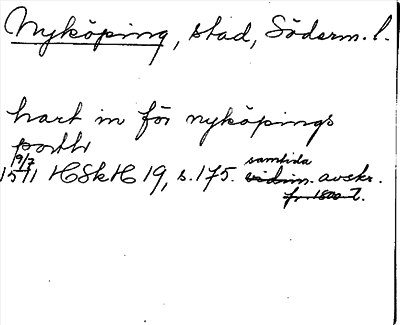 Nyköping, stad, Söderm. l.
hart in för nyköpings
portt
19/7
1571 HSkH 19, s. 175. samtida vidim. avskr.
fr. 1500 t.